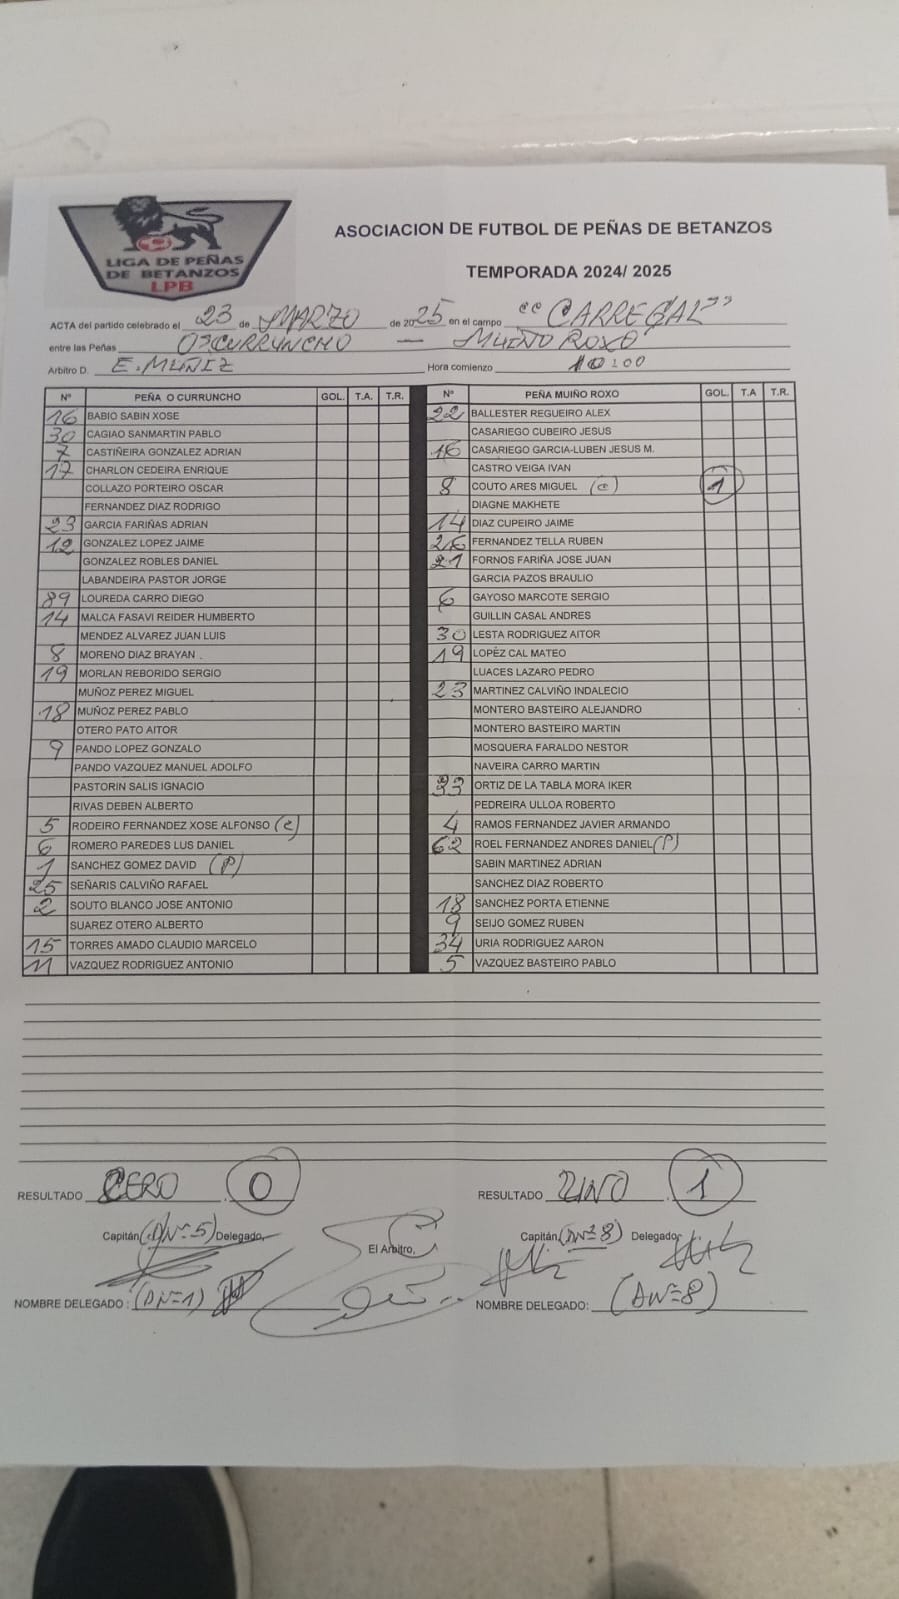 LIGA DE PEÑAS
DE BETANZOS
LPB
ASOCIACION DE FUTBOL DE PEÑAS DE BETANZOS
TEMPORADA 2024/ 2025
ACTA del partido celebrado el 23 de MARZO de 2025 en el campo "CARREGAL"
entre las Peñas O´CURRUNCHO — MUIÑO ROXO
Arbitro D. E. MUÑIZ Hora comienzo 10:00
Nº PEÑA O CURRUNCHO GOL. T.A. T.R. Nº PEÑA MUIÑO ROXO GOL. T.A T.R.
16 BABIO SABIN XOSE 22 BALLESTER REGUEIRO ALEX
30 CAGIAO SANMARTIN PABLO CASARIEGO CUBEIRO JESUS
7 CASTIÑEIRA GONZALEZ ADRIAN 16 CASARIEGO GARCIA-LUBEN JESUS M.
17 CHARLON CEDEIRA ENRIQUE CASTRO VEIGA IVAN
COLLAZO PORTEIRO OSCAR 8 COUTO ARES MIGUEL (c) 1
FERNANDEZ DIAZ RODRIGO DIAGNE MAKHETE
23 GARCIA FARIÑAS ADRIAN 14 DIAZ CUPEIRO JAIME
12 GONZALEZ LOPEZ JAIME 26 FERNANDEZ TELLA RUBEN
GONZALEZ ROBLES DANIEL 21 FORNOS FARIÑA JOSE JUAN
LABANDEIRA PASTOR JORGE GARCIA PAZOS BRAULIO
89 LOUREDA CARRO DIEGO 6 GAYOSO MARCOTE SERGIO
14 MALCA FASAVI REIDER HUMBERTO GUILLIN CASAL ANDRES
MENDEZ ALVAREZ JUAN LUIS 30 LESTA RODRIGUEZ AITOR
8 MORENO DIAZ BRAYAN . 19 LOPEZ CAL MATEO
19 MORLAN REBORIDO SERGIO LUACES LAZARO PEDRO
MUÑOZ PEREZ MIGUEL 23 MARTINEZ CALVIÑO INDALECIO
18 MUÑOZ PEREZ PABLO MONTERO BASTEIRO ALEJANDRO
OTERO PATO AITOR MONTERO BASTEIRO MARTIN
9 PANDO LOPEZ GONZALO MOSQUERA FARALDO NESTOR
PANDO VAZQUEZ MANUEL ADOLFO NAVEIRA CARRO MARTIN
PASTORIN SALIS IGNACIO 33 ORTIZ DE LA TABLA MORA IKER
RIVAS DEBEN ALBERTO PEDREIRA ULLOA ROBERTO
5 RODEIRO FERNANDEZ XOSE ALFONSO (c) 4 RAMOS FERNANDEZ JAVIER ARMANDO
6 ROMERO PAREDES LUS DANIEL 62 ROEL FERNANDEZ ANDRES DANIEL (P)
1 SANCHEZ GOMEZ DAVID (P) SABIN MARTINEZ ADRIAN
25 SEÑARIS CALVIÑO RAFAEL SANCHEZ DIAZ ROBERTO
2 SOUTO BLANCO JOSE ANTONIO 18 SANCHEZ PORTA ETIENNE
SUAREZ OTERO ALBERTO 9 SEIJO GOMEZ RUBEN
15 TORRES AMADO CLAUDIO MARCELO 34 URIA RODRIGUEZ AARON
11 VAZQUEZ RODRIGUEZ ANTONIO 5 VAZQUEZ BASTEIRO PABLO
RESULTADO CERO 0 RESULTADO UNO 1
Capitán (DNº5) Delegado, El Arbitro, Capitán (DNº8) Delegado,
NOMBRE DELEGADO : (DNº1) NOMBRE DELEGADO: (DNº8)